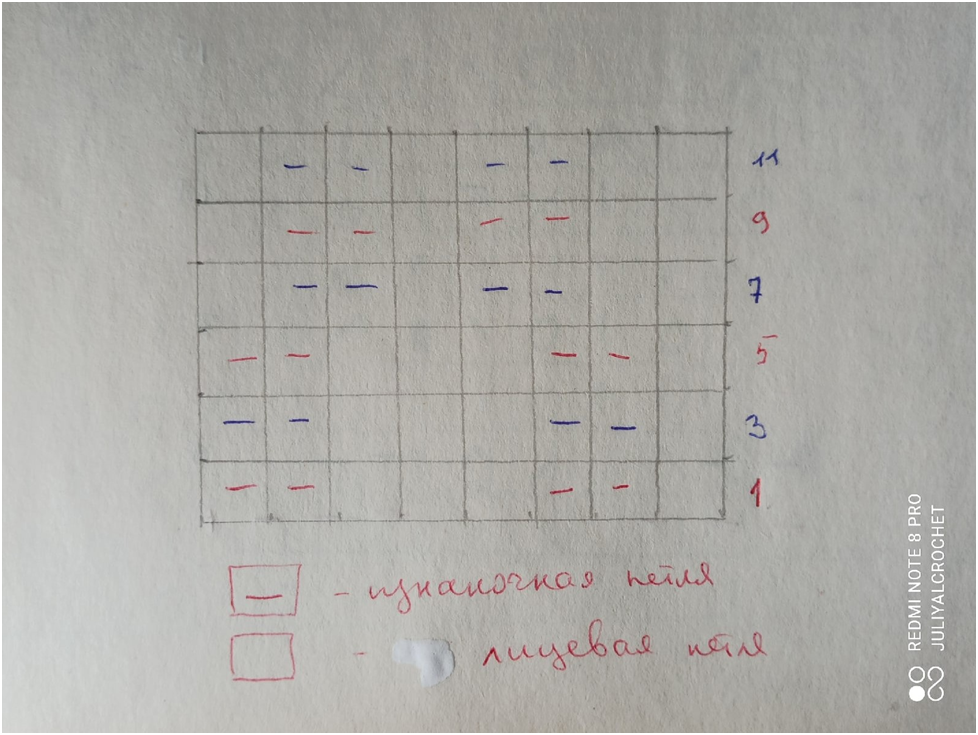 11
9
7
5
3
1
- изнаночная петля
- лицевая петля
REDMI NOTE 8 PRO
JULIYALCROCHET